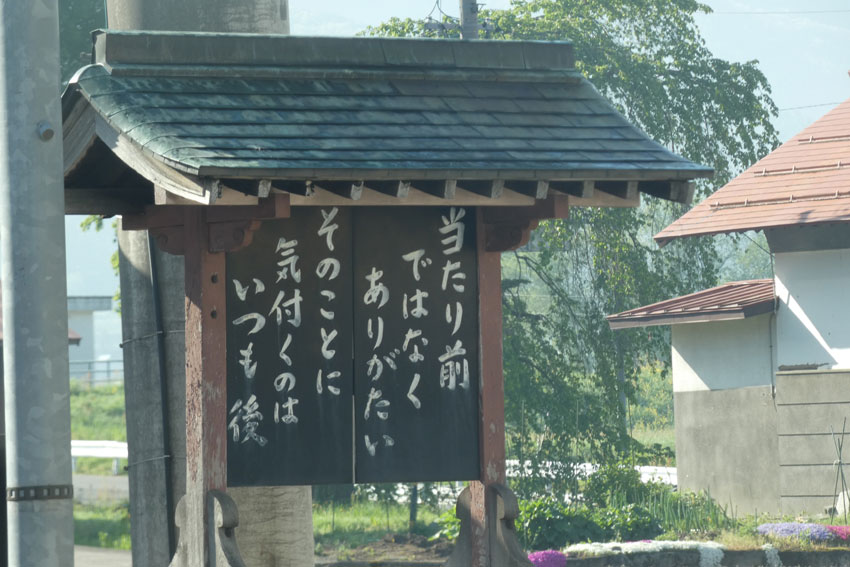 当たり前
ではなく
ありがたい
そのことに
気付くのは
いつも後